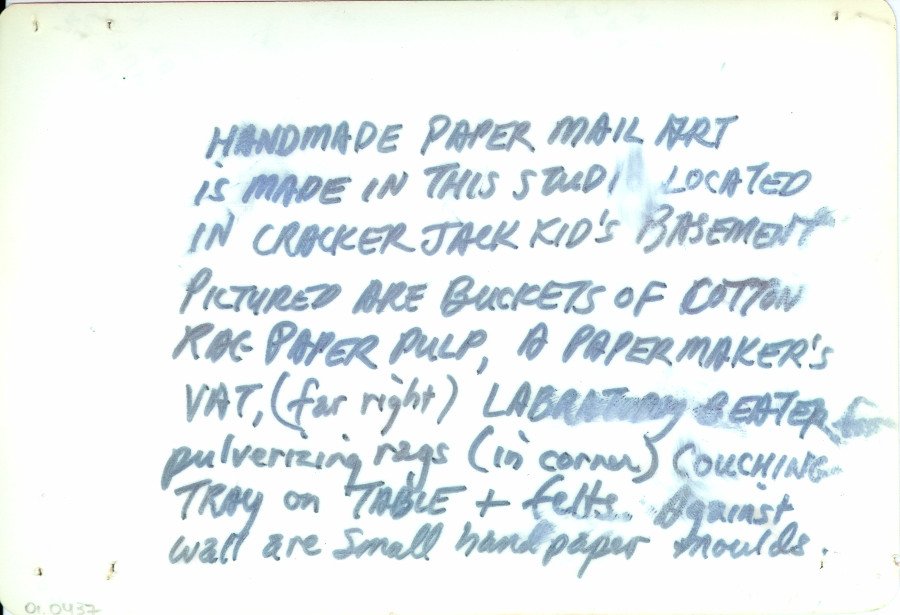 HANDMADE PAPER MAIL ART
is MADE IN THIS STUDI LOCATED
IN CRACKER JACK KID'S BASEMENT
PICTURED ARE BUCKETS OF COTTON
RAG PAPER PULP, A PAPERMAKER'S
VAT, (far right) LABRATORY BEATER for
pulverizing rags (in corner) COUCHING
TRAY on TABLE + felts. Against
wall are small hand paper moulds.
01.0437